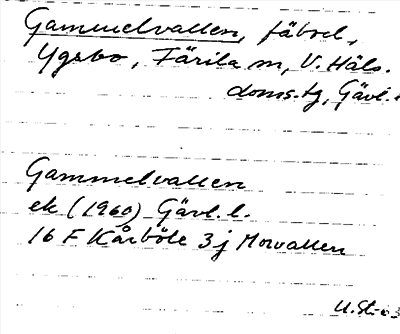 Gammelvallen, fäbod,
Ygsbo, Färila sn, V. Häls.
doms. tg, Gävl.
Gammelvallen
ek (1960) Gävl. l.
16 F Kårböle 3j Movallen